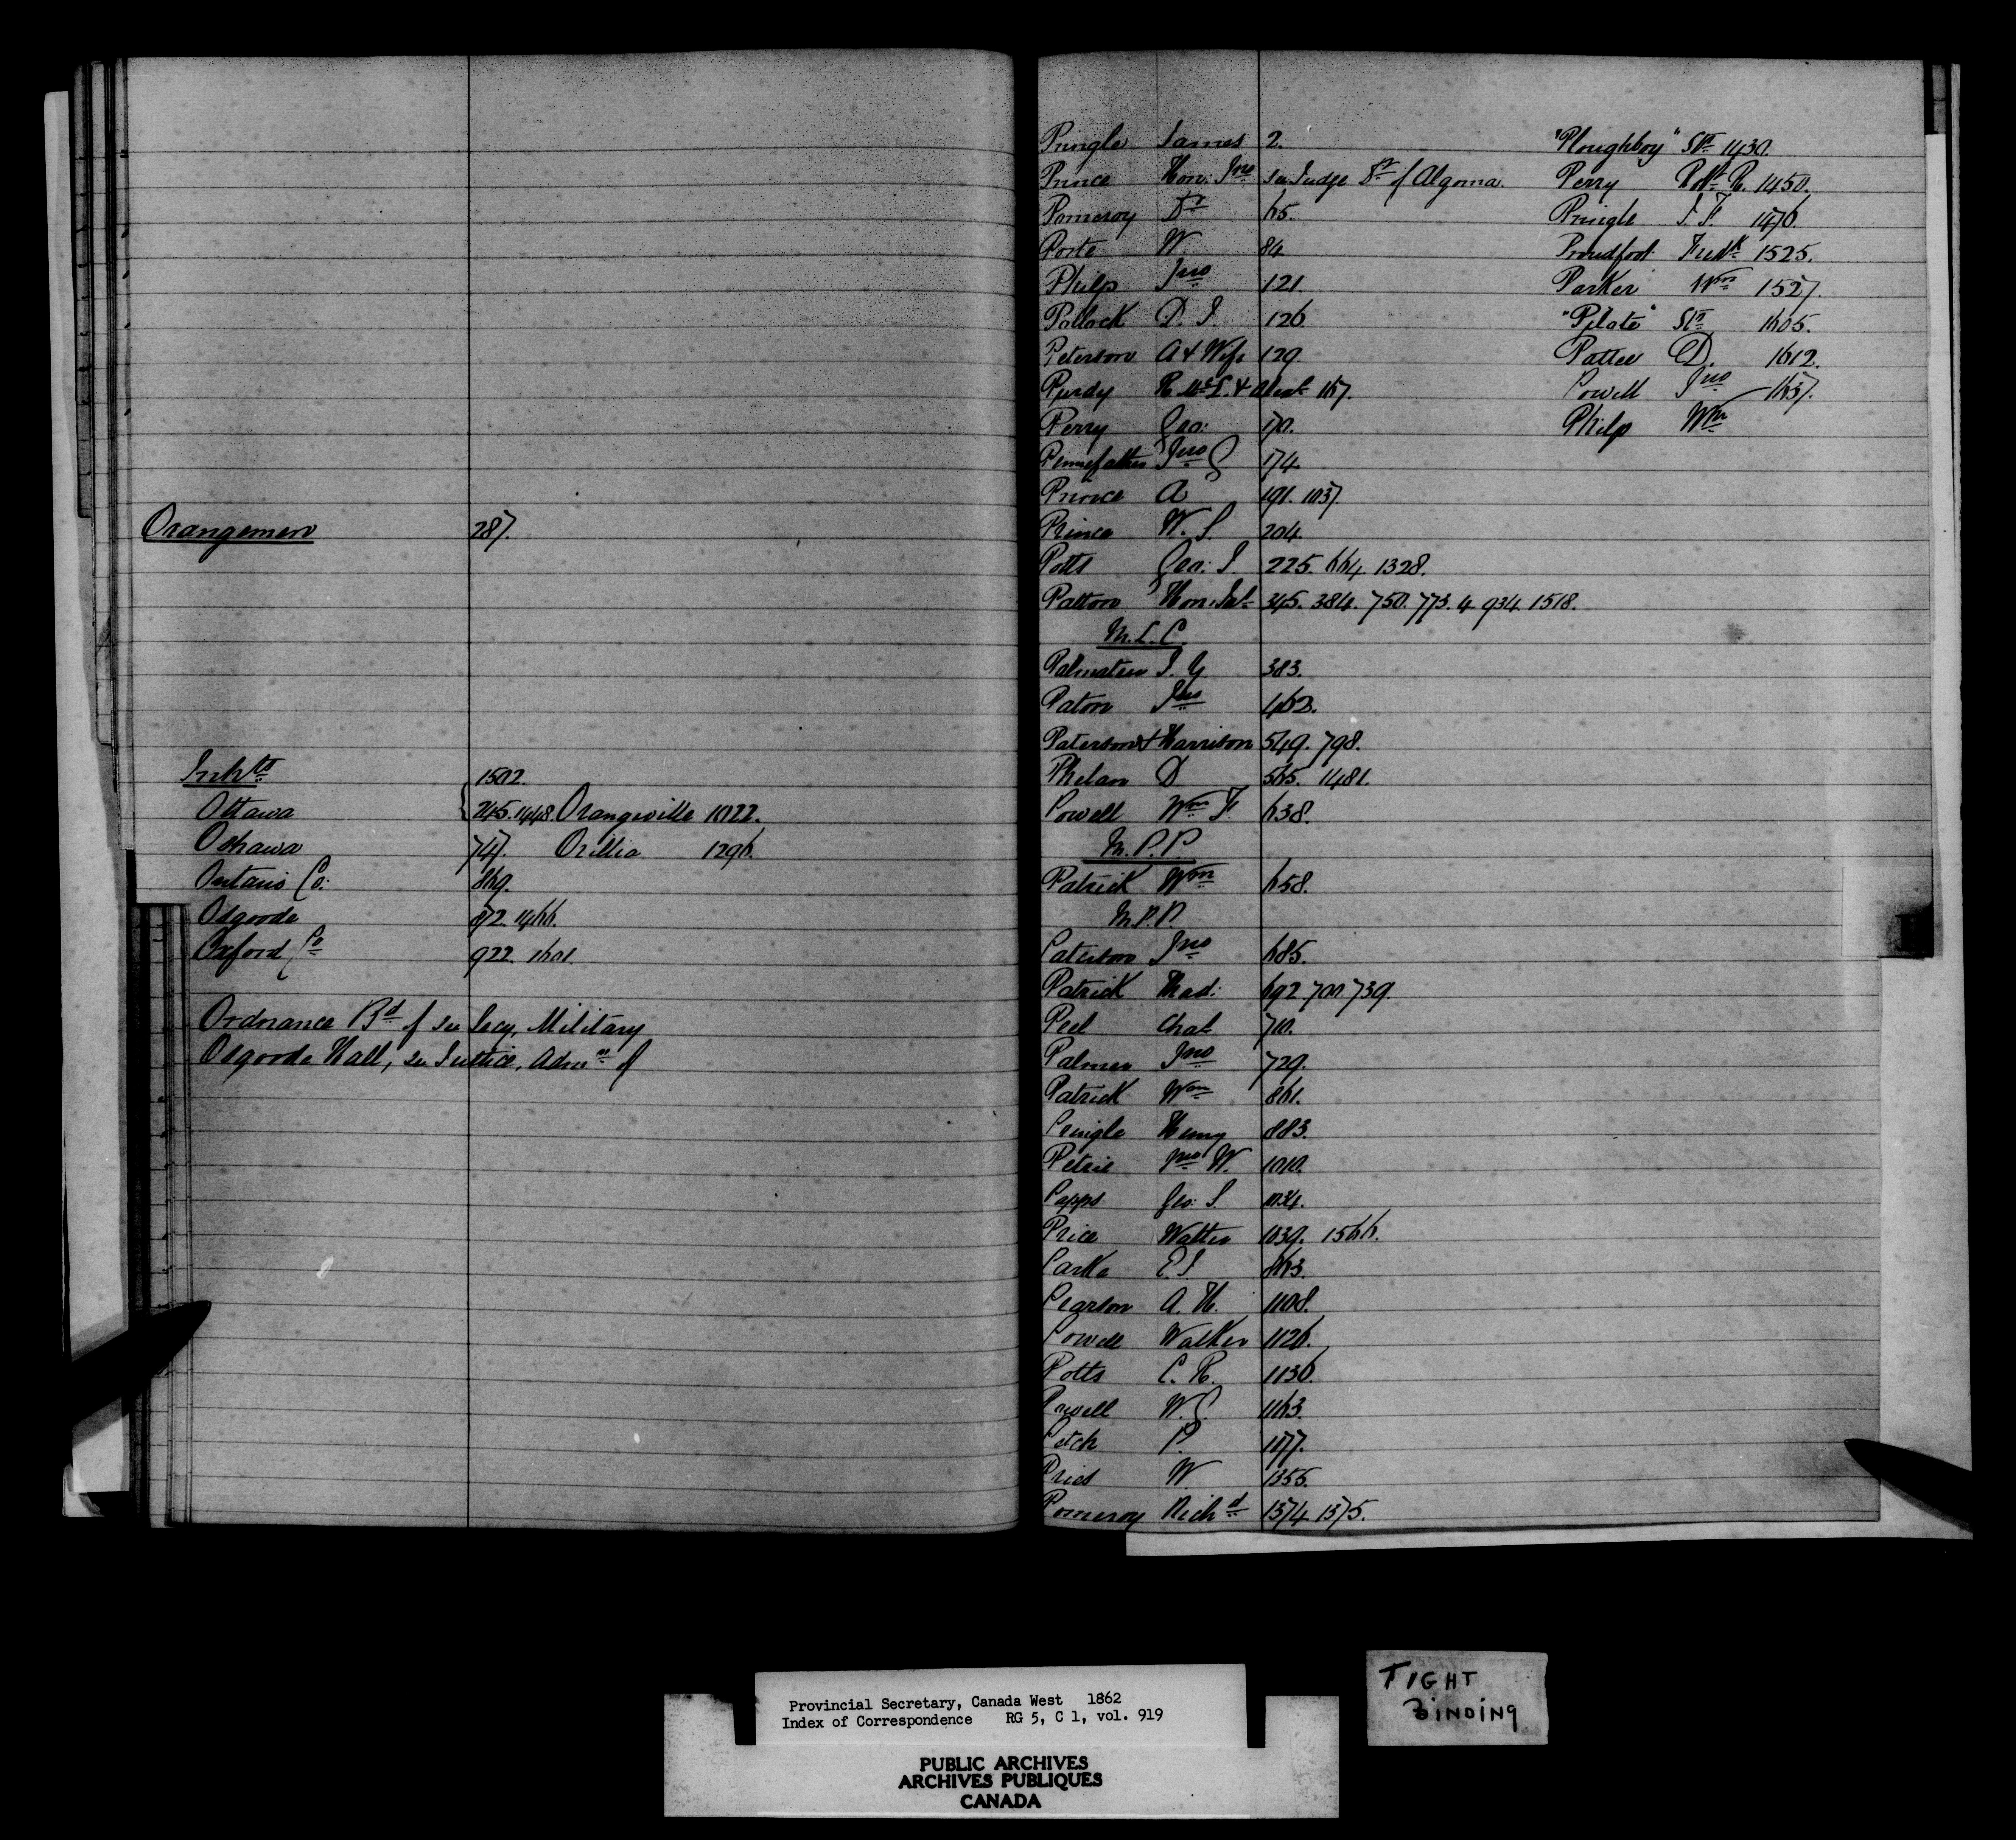 Orangemen 287.
Inhts 1502.
Ottawa 245. 1448. Orangeville 1022.
Oshawa 747. Orillia 1296.
Ontario Co: 869.
Osgoode 872. 1466.
Oxford Co 922. 1601.
Ordnance Bd of see Secy, Military
Osgoode Hall, see Justice, Admn of
Pringle James 2.
Prince Hon: Jno see Judge Dt of Algoma.
Pomeroy Dr 65.
Porte W 84
Philps Jno 121.
Pollock D. J. 126.
Peterson A & Wife 129.
Purdy R. McL. & 167.
Perry Geo: 170.
Pennefather Jno 174.
Prince A 191. 1037
Prince W. S. 204.
Potts Geo: J. 225. 664. 1328.
Patton Hon: Jas 345. 384. 750. 773. 4 934. 1518.
M.L.C
Palmateer J. Y. 383.
Paton Jno 462.
Paterson & Harrison 549. 798.
Phelan D 565. 1481.
Powell Wm F. 638.
M.P.P.
Patrick Wm 658.
M.P.P.
Paterson Jno 685.
Patrick Thad: 692. 700 739.
Peel Chas 710.
Palmer Jno 729.
Patrick Wm 861.
Pringle Henry 883.
Petrie Jno W. 1010.
Papps Geo: S. 1034.
Price Walter 1039. 1566.
Parke E. J. 863.
Pearson A. H. 1108.
Powell Walker 1126.
Potts C. R. 1136.
Powell W. 1163.
Petch P. 1177.
Pries W. 1355.
Pomeroy Richd 1374 1375.
"Ploughboy" Str 1430.
Perry Robt R. 1450.
Pringle J. F. 1476.
Proudfoot Fredk 1525.
Parker Wm 1527.
"Pilote" Str 1605.
Pattee D. 1612.
Powell Jno 1637.
Philp Wm
Provincial Secretary, Canada West 1862
Index of Correspondence RG 5, C 1, vol. 919
PUBLIC ARCHIVES
ARCHIVES PUBLIQUES
CANADA
TIGHT
BINDING